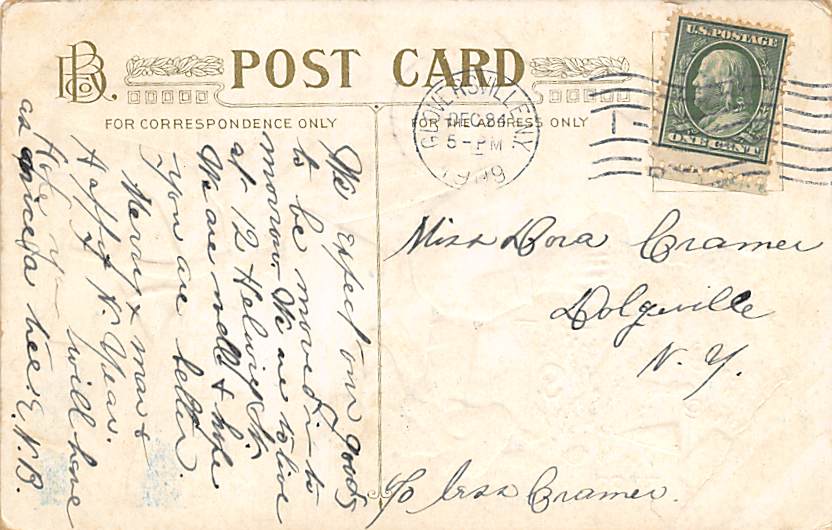 BRCo.
POST CARD
FOR CORRESPONDENCE ONLY
FOR THE ADDRESS ONLY
U.S. POSTAGE
ONE CENT
GLOVERSVILLE, N.Y.
DEC 26
5-PM
1909
We expect our goods
to be moved in to
morrow. We are to live
at 12 Helwig St.
We are well & hope
you are better.
Merry x mas &
Happy N. Year.
Hope you will have
as nice a tree. E.N.B.
Miss Dora Cramer
Dolgeville
N.Y.
c/o Cramer.